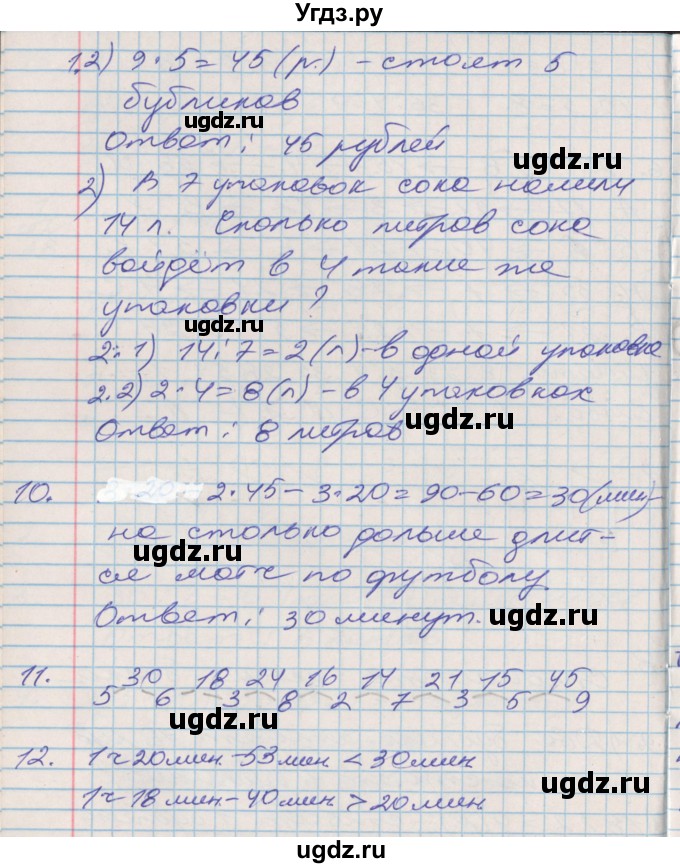 Угдз.ру
1.2) 9 · 5 = 45 (р.) – стоят 5
бубликов
ugdz.ru
Ответ: 45 рублей
ugdz.ru
2) В 7 упаковок сока налили
14 л. Сколько литров сока
ugdz.ru
войдёт в 4 такие же
упаковки?
ugdz.ru
2.1) 14 : 7 = 2 (л) – в одной упаковке
ugdz.ru
2.2) 2 · 4 = 8 (л) – в 4 упаковках
ugdz.ru
Ответ: 8 литров
10. 2·45 – 3·20 = 90 – 60 = 30 (мин) –
на столько дольше длит-
ugdz.ru
ugdz.ru
ся матч по футболу.
Ответ: 30 минут.
ugdz.ru
11. 30 18 24 16 14 21 15 45
5 6 3 8 2 7 3 5 9
ugdz.ru
ugdz.ru
12. 1 ч 20 мин – 53 мин < 30 мин
ugdz.ru
1 ч 18 мин – 40 мин > 20 мин
ugdz.ru
Угдз.ру